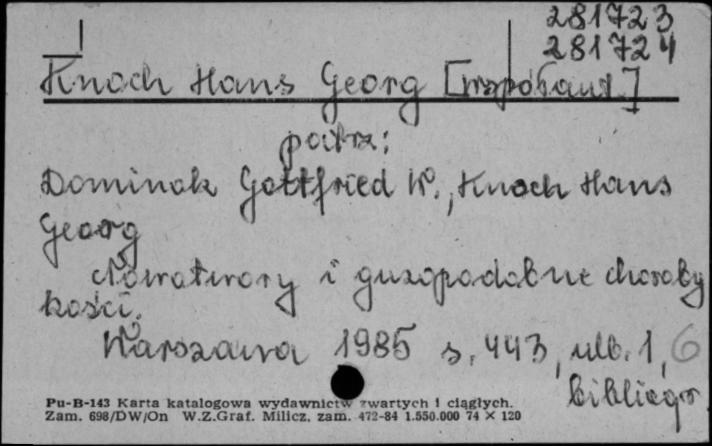 281723
281724
Knoch Hans Georg [współaut.]
patrz:
Dominok Gottfried W., Knoch Hans
Georg
Nowotwory i guzopodobne choroby
kości.
Warszawa 1985 s. 443, nlb. 1, 6
bibliogr
Pu-B-143 Karta katalogowa wydawnictw zwartych i ciągłych.
Zam. 698/DW/On W.Z.Graf. Milicz, zam. 472-84 1.550.000 74 × 120